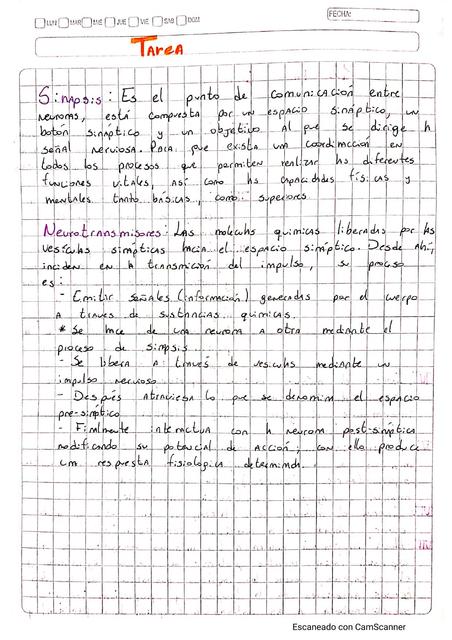 LUN MAR MIE JUE VIE SAB DOM
FECHA:
Tarea
Sinapsis: Es el punto de comunicación entre
neuronas, está compuesta por un espacio sináptico, un
botón sináptico y un objetivo al que se dirige la
señal nerviosa. Para que exista una coordinación en
todos los procesos que permiten realizar las diferentes
funciones vitales, así como las capacidades físicas y
mentales tanto básicas, como superiores
Neurotransmisores: Las moleculas quimicas liberadas por las
vesículas sinápticas hacia el espacio sináptico. Desde ahí,
inciden en la transmición del impulso, su proceso
es:
- Emitir señales (información) generadas por el cuerpo
a traves de sustancias quimicas.
* Se hace de una neurona a otra mediante el
proceso de sinapsis
- Se libera a través de vesiculas mediante un
impulso nervioso
- Después atraviesa lo que se denomina el espacio
pre-sináptico
- Finalmente interactua con la neurona post-sináptica
modificando su potencial de acción, con ello produce
una respuesta fisiologica determinada.
Escaneado con CamScanner